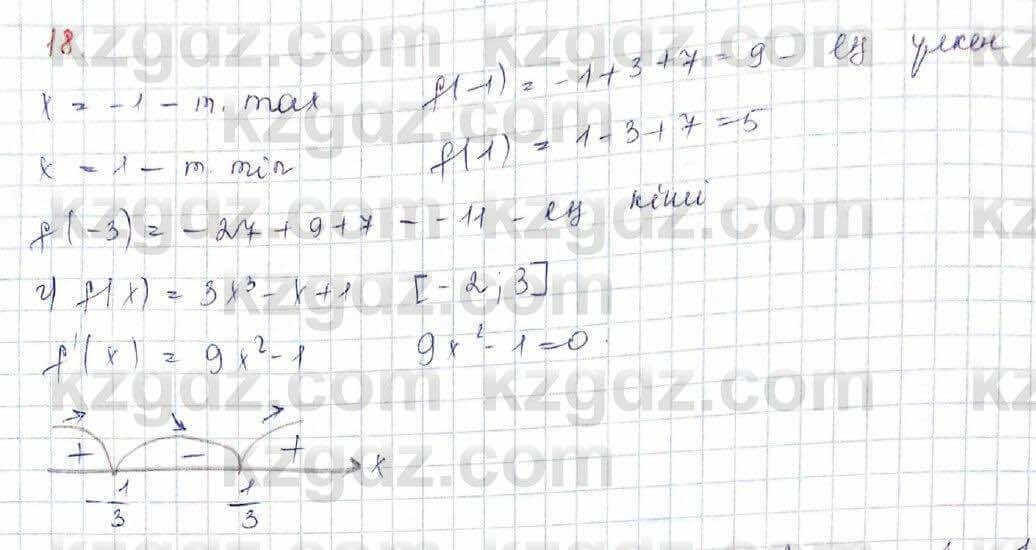 18.
x = -1 - т. max f(-1) = -1+3+7 = 9 - ең үлкен
x = 1 - т. min f(1) = 1-3+7=5
f(-3) = -27+9+7 = -11 - ең кіші
2) f(x) = 3x³-x+1 [-2;3]
f'(x) = 9x²-1 9x²-1=0.
+ - + x
-1/3 1/3
kzgdz.com